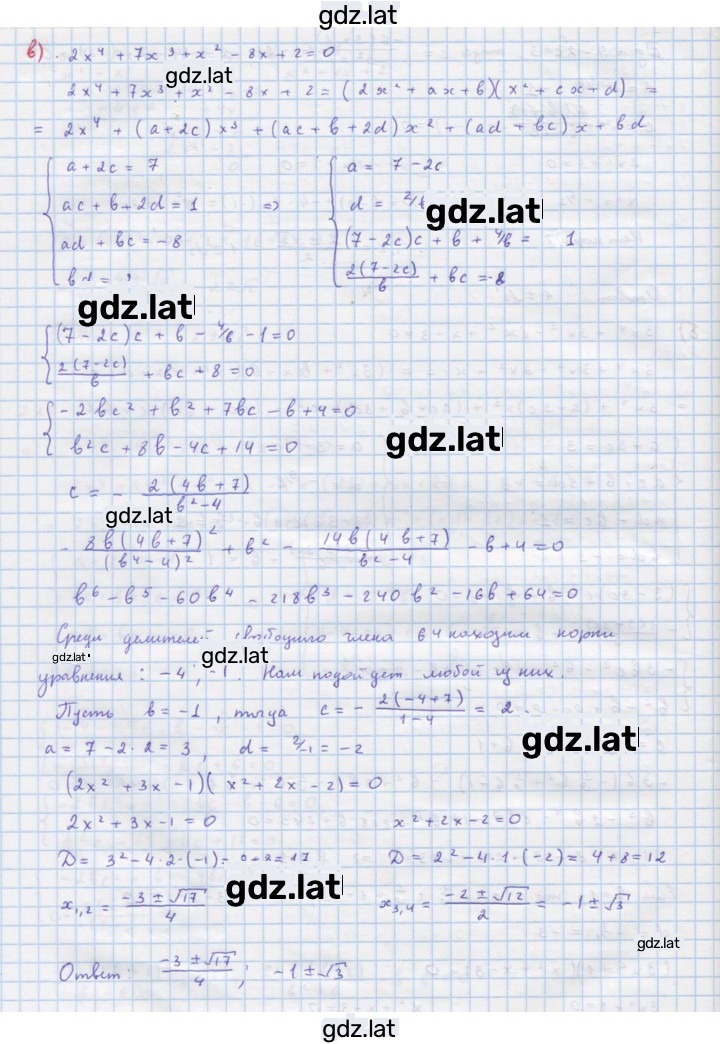 gdz.lat
в) 2x⁴ + 7x³ + x² - 8x + 2 = 0
gdz.lat
2x⁴ + 7x³ + x² - 8x + 2 = (2x² + ax + b)(x² + cx + d) =
= 2x⁴ + (a + 2c)x³ + (ac + b + 2d)x² + (ad + bc)x + bd
a + 2c = 7
ac + b + 2d = 1 =>
ad + bc = -8
bd =
a = 7 - 2c
d = 2/b
gdz.lat
(7 - 2c)c + b + 4/b = 1
2(7-2c)/b + bc = -8
gdz.lat
(7 - 2c)c + b - 4/b - 1 = 0
2(7-2c)/b + bc + 8 = 0
-2bc² + b² + 7bc - b + 4 = 0
gdz.lat
b²c + 8b - 4c + 14 = 0
c = - 2(4b+7)/b²-4
gdz.lat
- 8b(4b+7)²/(b⁴-4)² + b² - 14b(4b+7)/b²-4 - b + 4 = 0
b⁶ - b⁵ - 60b⁴ - 218b³ - 240b² - 16b + 64 = 0
Среди делителей свободного члена 64 находим корни
gdz.lat
gdz.lat
уравнения: -4, -1. Нам подойдет любой из них.
Пусть b = -1, тогда c = - 2(-4+7)/1-4 = 2.
gdz.lat
a = 7 - 2·2 = 3, d = 2/-1 = -2
(2x² + 3x - 1)(x² + 2x - 2) = 0
2x² + 3x - 1 = 0
x² + 2x - 2 = 0
D = 3² - 4·2·(-1) = 9 + 8 = 17
D = 2² - 4·1·(-2) = 4 + 8 = 12
gdz.lat
x₁,₂ = -3 ± √17/4
x₃,₄ = -2 ± √12/2 = -1 ± √3
gdz.lat
Ответ: -3 ± √17/4; -1 ± √3
gdz.lat